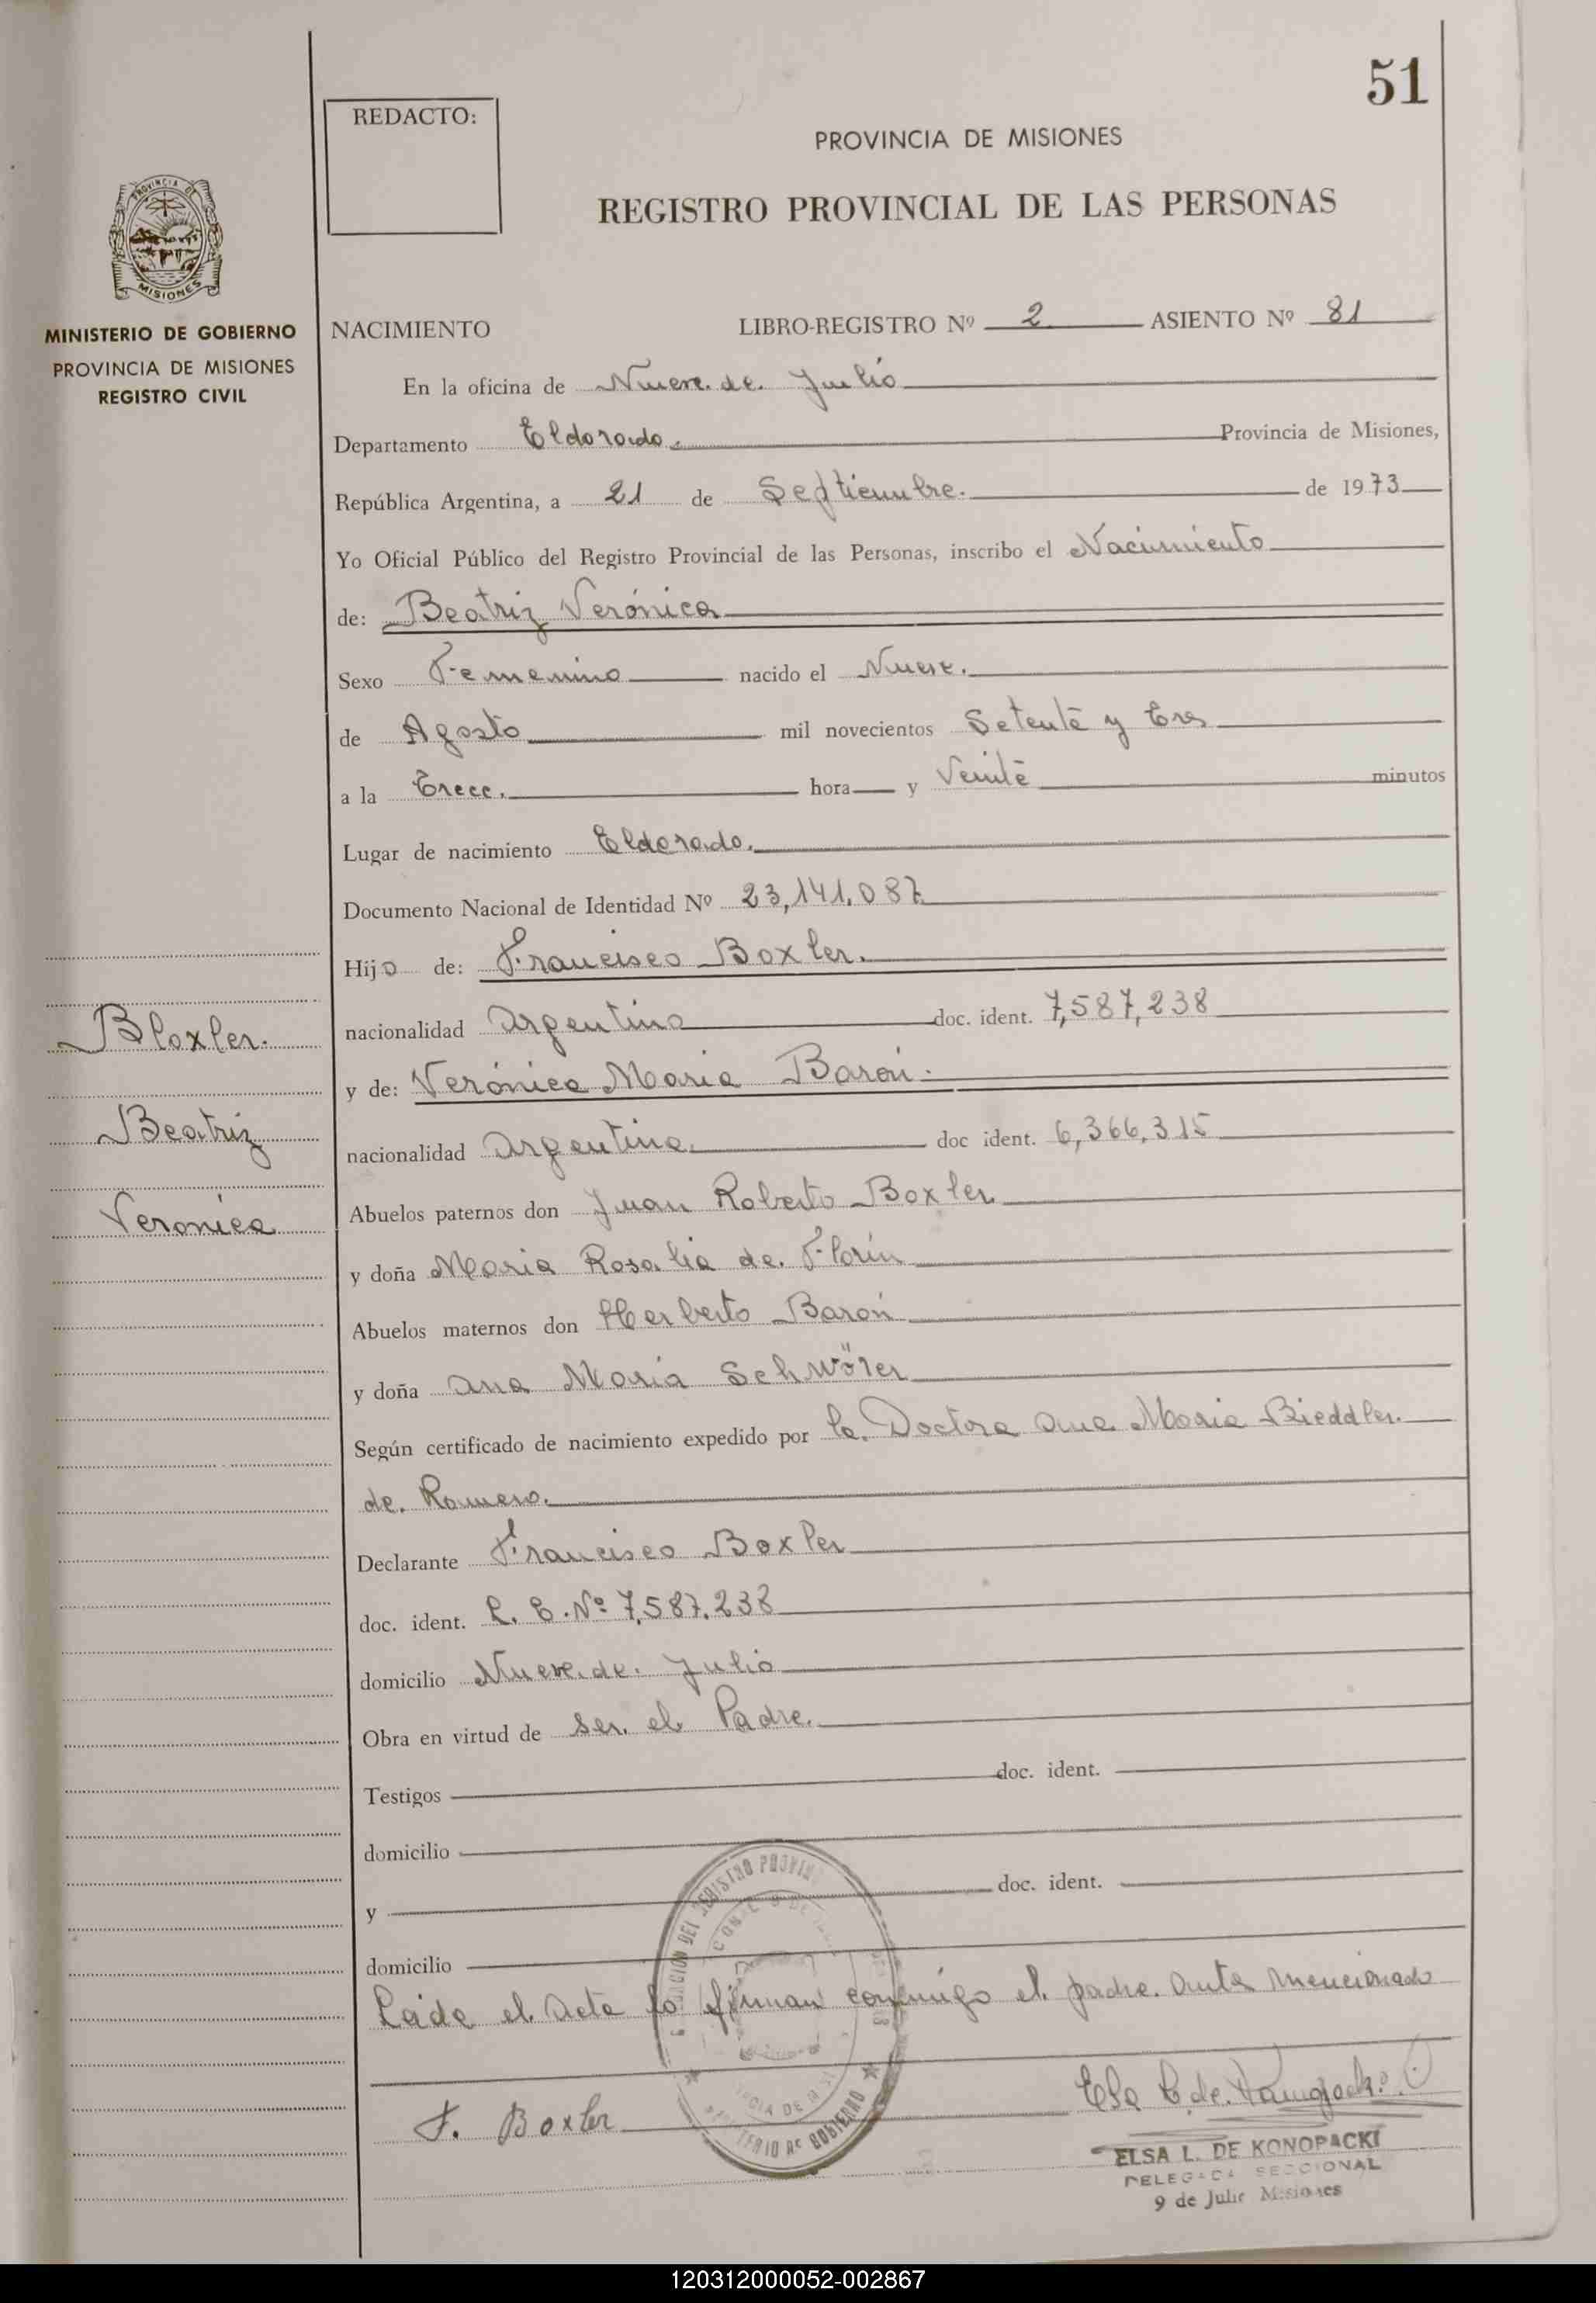 51
REDACTO:
PROVINCIA DE MISIONES
REGISTRO PROVINCIAL DE LAS PERSONAS
PROVINCIA DE
MISIONES
MINISTERIO DE GOBIERNO
PROVINCIA DE MISIONES
REGISTRO CIVIL
NACIMIENTO LIBRO-REGISTRO Nº 2 ASIENTO Nº 81
En la oficina de Nueve de Julio
Departamento Eldorado. Provincia de Misiones,
República Argentina, a 21 de Septiembre. de 1973
Yo Oficial Público del Registro Provincial de las Personas, inscribo el Nacimiento
de: Beatriz Verónica
Sexo Femenino nacido el Nueve.
de Agosto mil novecientos Setenta y Tres
a la Trece. hora y Veinte minutos
Lugar de nacimiento Eldorado.
Documento Nacional de Identidad Nº 23,141,087
Hijo de: Francisco Boxler.
nacionalidad Argentino doc. ident. 7,587,238
y de: Verónica Maria Barón.
nacionalidad Argentina. doc ident. 6,366,315
Abuelos paternos don Juan Roberto Boxler
y doña Maria Rosalia de Florín
Abuelos maternos don Herberto Barón
y doña Ana Maria Schwörer
Según certificado de nacimiento expedido por la Doctora Ana Maria Rieddler.
de Romero.
Declarante Francisco Boxler
doc. ident. L. E. Nº 7,587.238
domicilio Nueve de Julio
Obra en virtud de Ser el Padre.
Testigos doc. ident.
domicilio
y doc. ident.
domicilio
Leida el Acta lo firman conmigo el padre. Antes mencionado
F. Boxler
ELSA L. DE KONOPACKI
DELEGADA SECCIONAL
9 de Julio Misiones
Bloxler.
Beatriz
Veronica
120312000052-002867